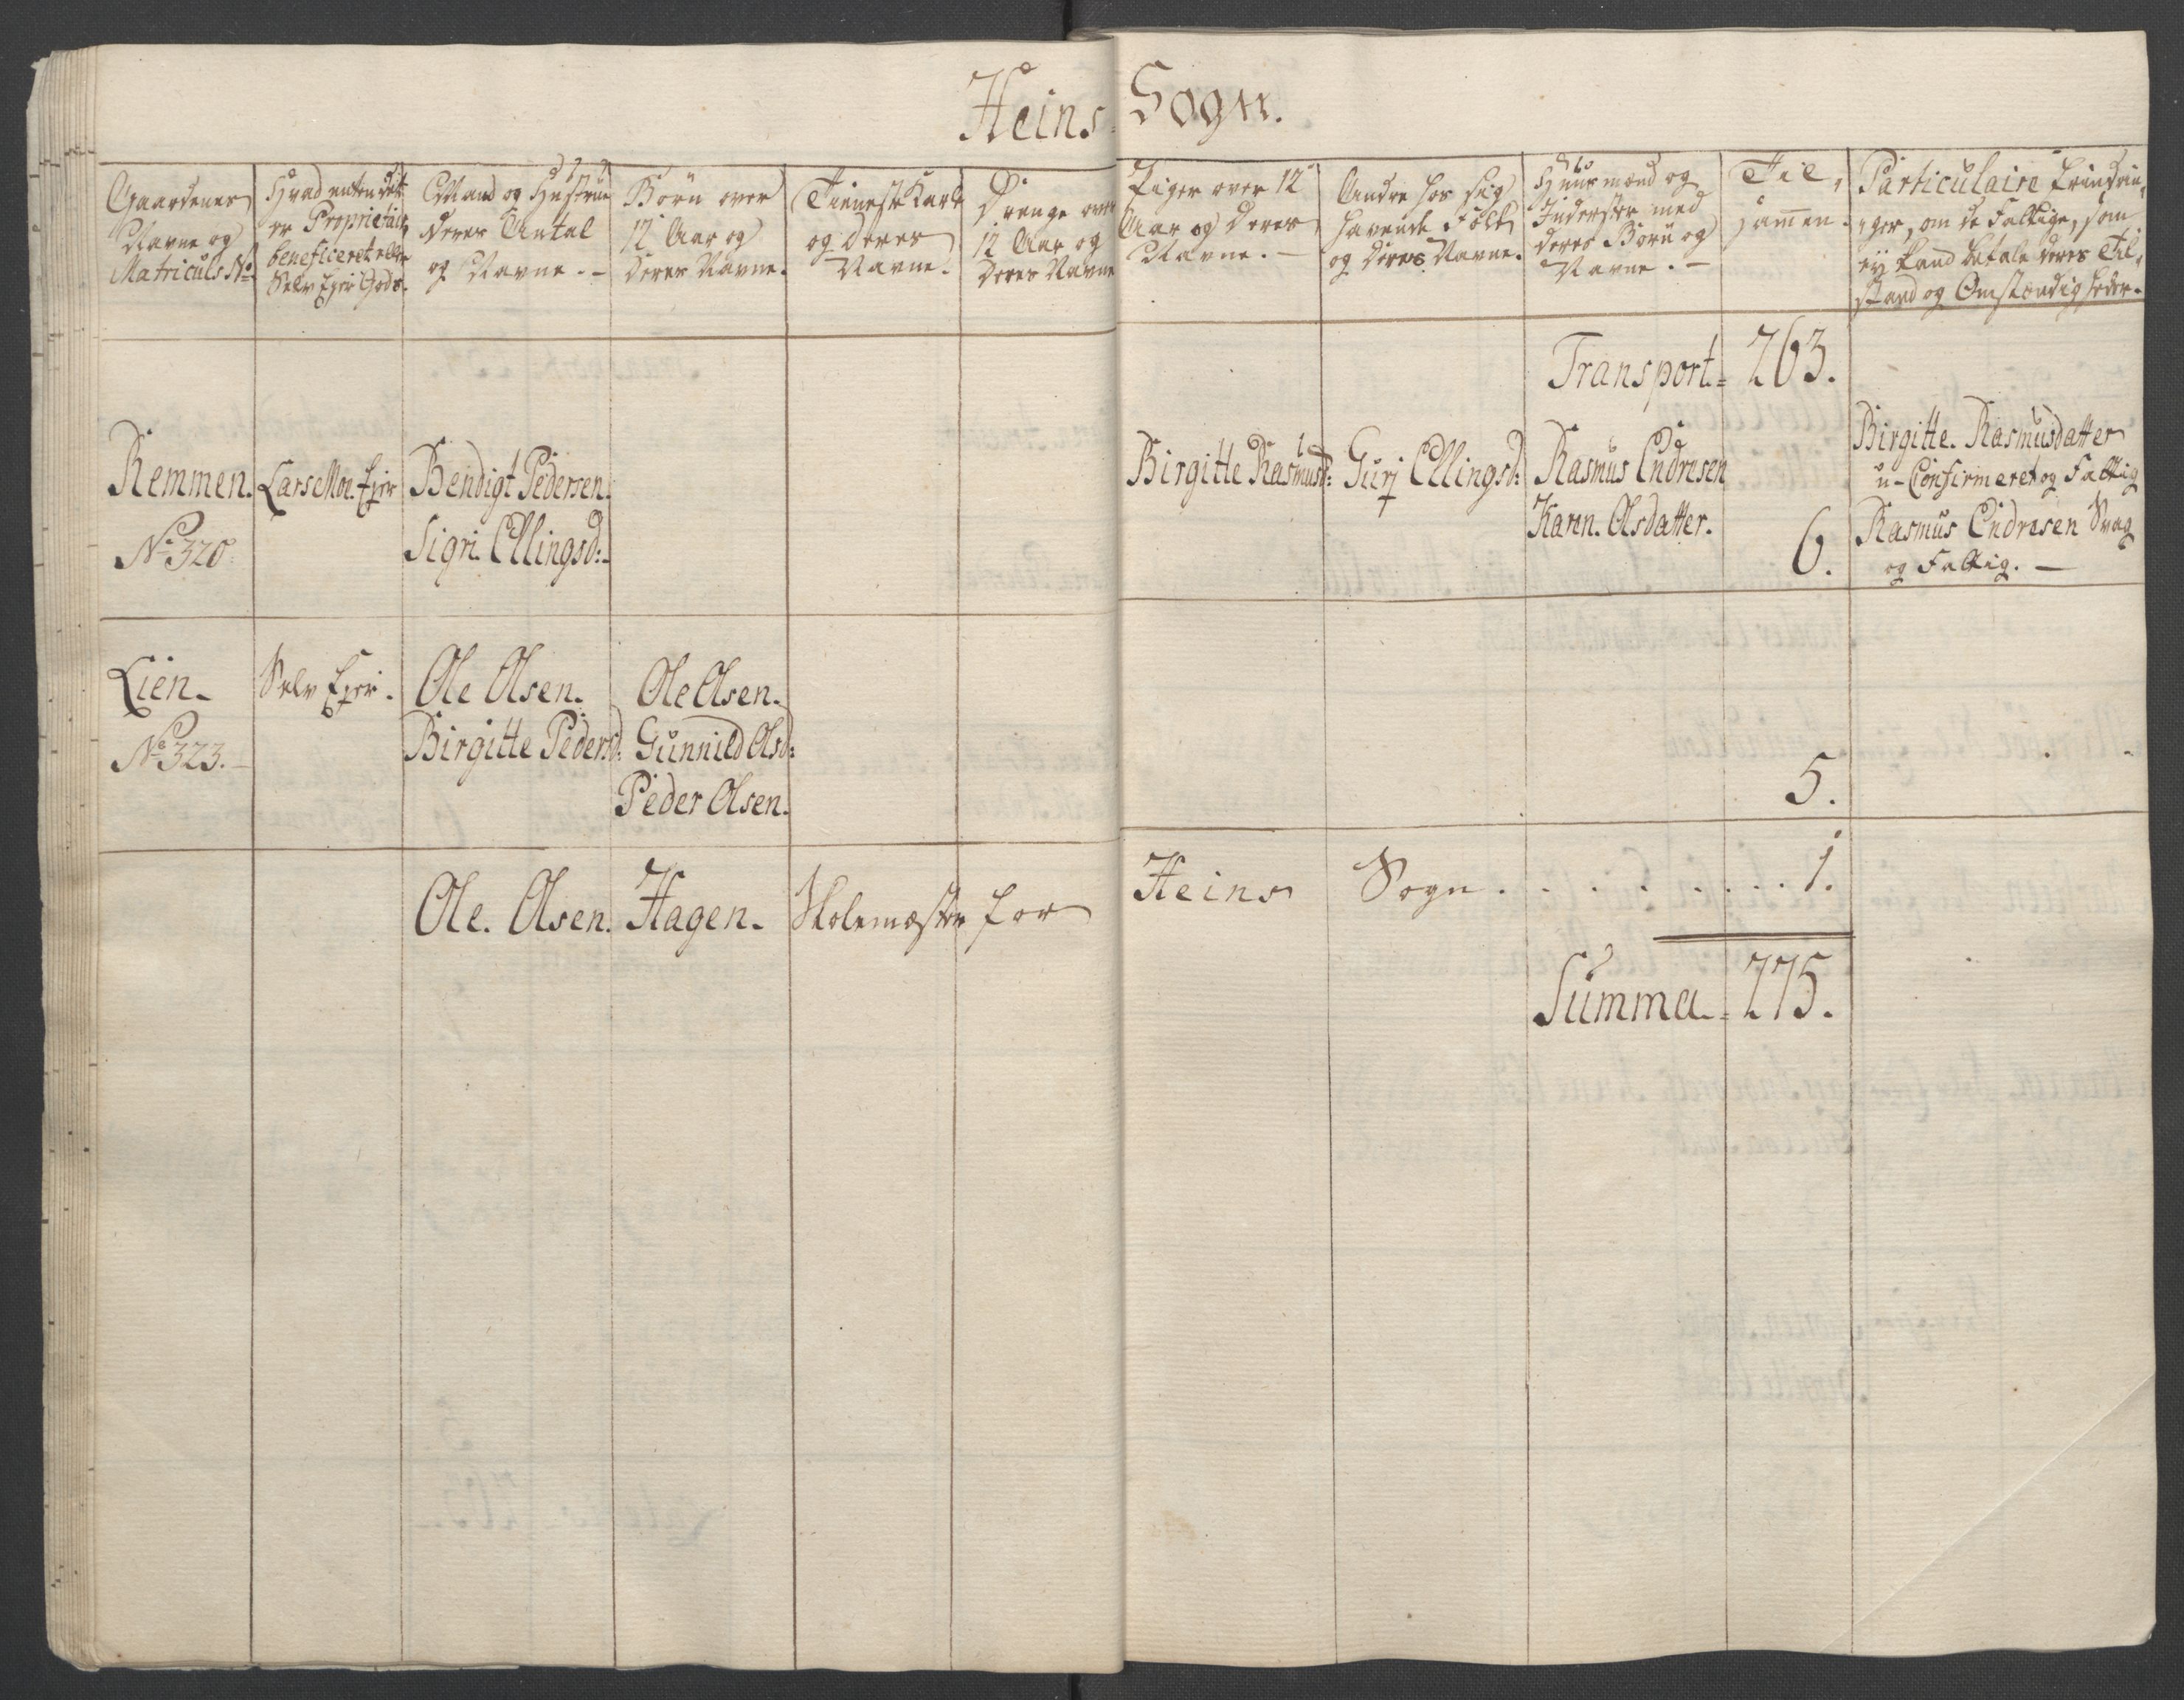 Heins Sogn.
Gaardenes Navne og Matriculs No
Hvad enten det er Proprietair, beneficeret eller Selv Ejer Gods.
Mand og Hustrue Deres Antal og Navne.
Børn over 12 Aar og Deres Navne.
Tieneste Karle og Deres Navne.
Drenge over 12 Aar og Deres Navne
Piger over 12 Aar og Deres Navne.
Andre hos sig havende Folk og Deres Navne.
Huusmænd og Inderster med deres Børn og Navne.
Til, sammen.
Particulaire om de Fattige, som ej kand betale deres Til, stand og Omstændigheder.
Transport = 263.
Remmen.
No 320
Lars Mor. Ejer
Bendigt Pedersen.
Sigri Ellingsd:
Birgitte Rasmusd:
Gurj Ellingsd:
Rasmus Endresen
Karen. Olsdatter.
6.
Birgitte. Rasmusdatter
u-Confirmeret og Fattig
Rasmus Endresen Svag
og Fattig.
Lien
No 323.
Selv Ejer.
Ole Olsen.
Birgitte Pedersd:
Ole Olsen.
Gunnild Olsd:
Peder Olsen.
5.
Ole. Olsen. Hagen. Skolemæster for Heins Sogn . . . . . . . . 1.
Summa = 275.